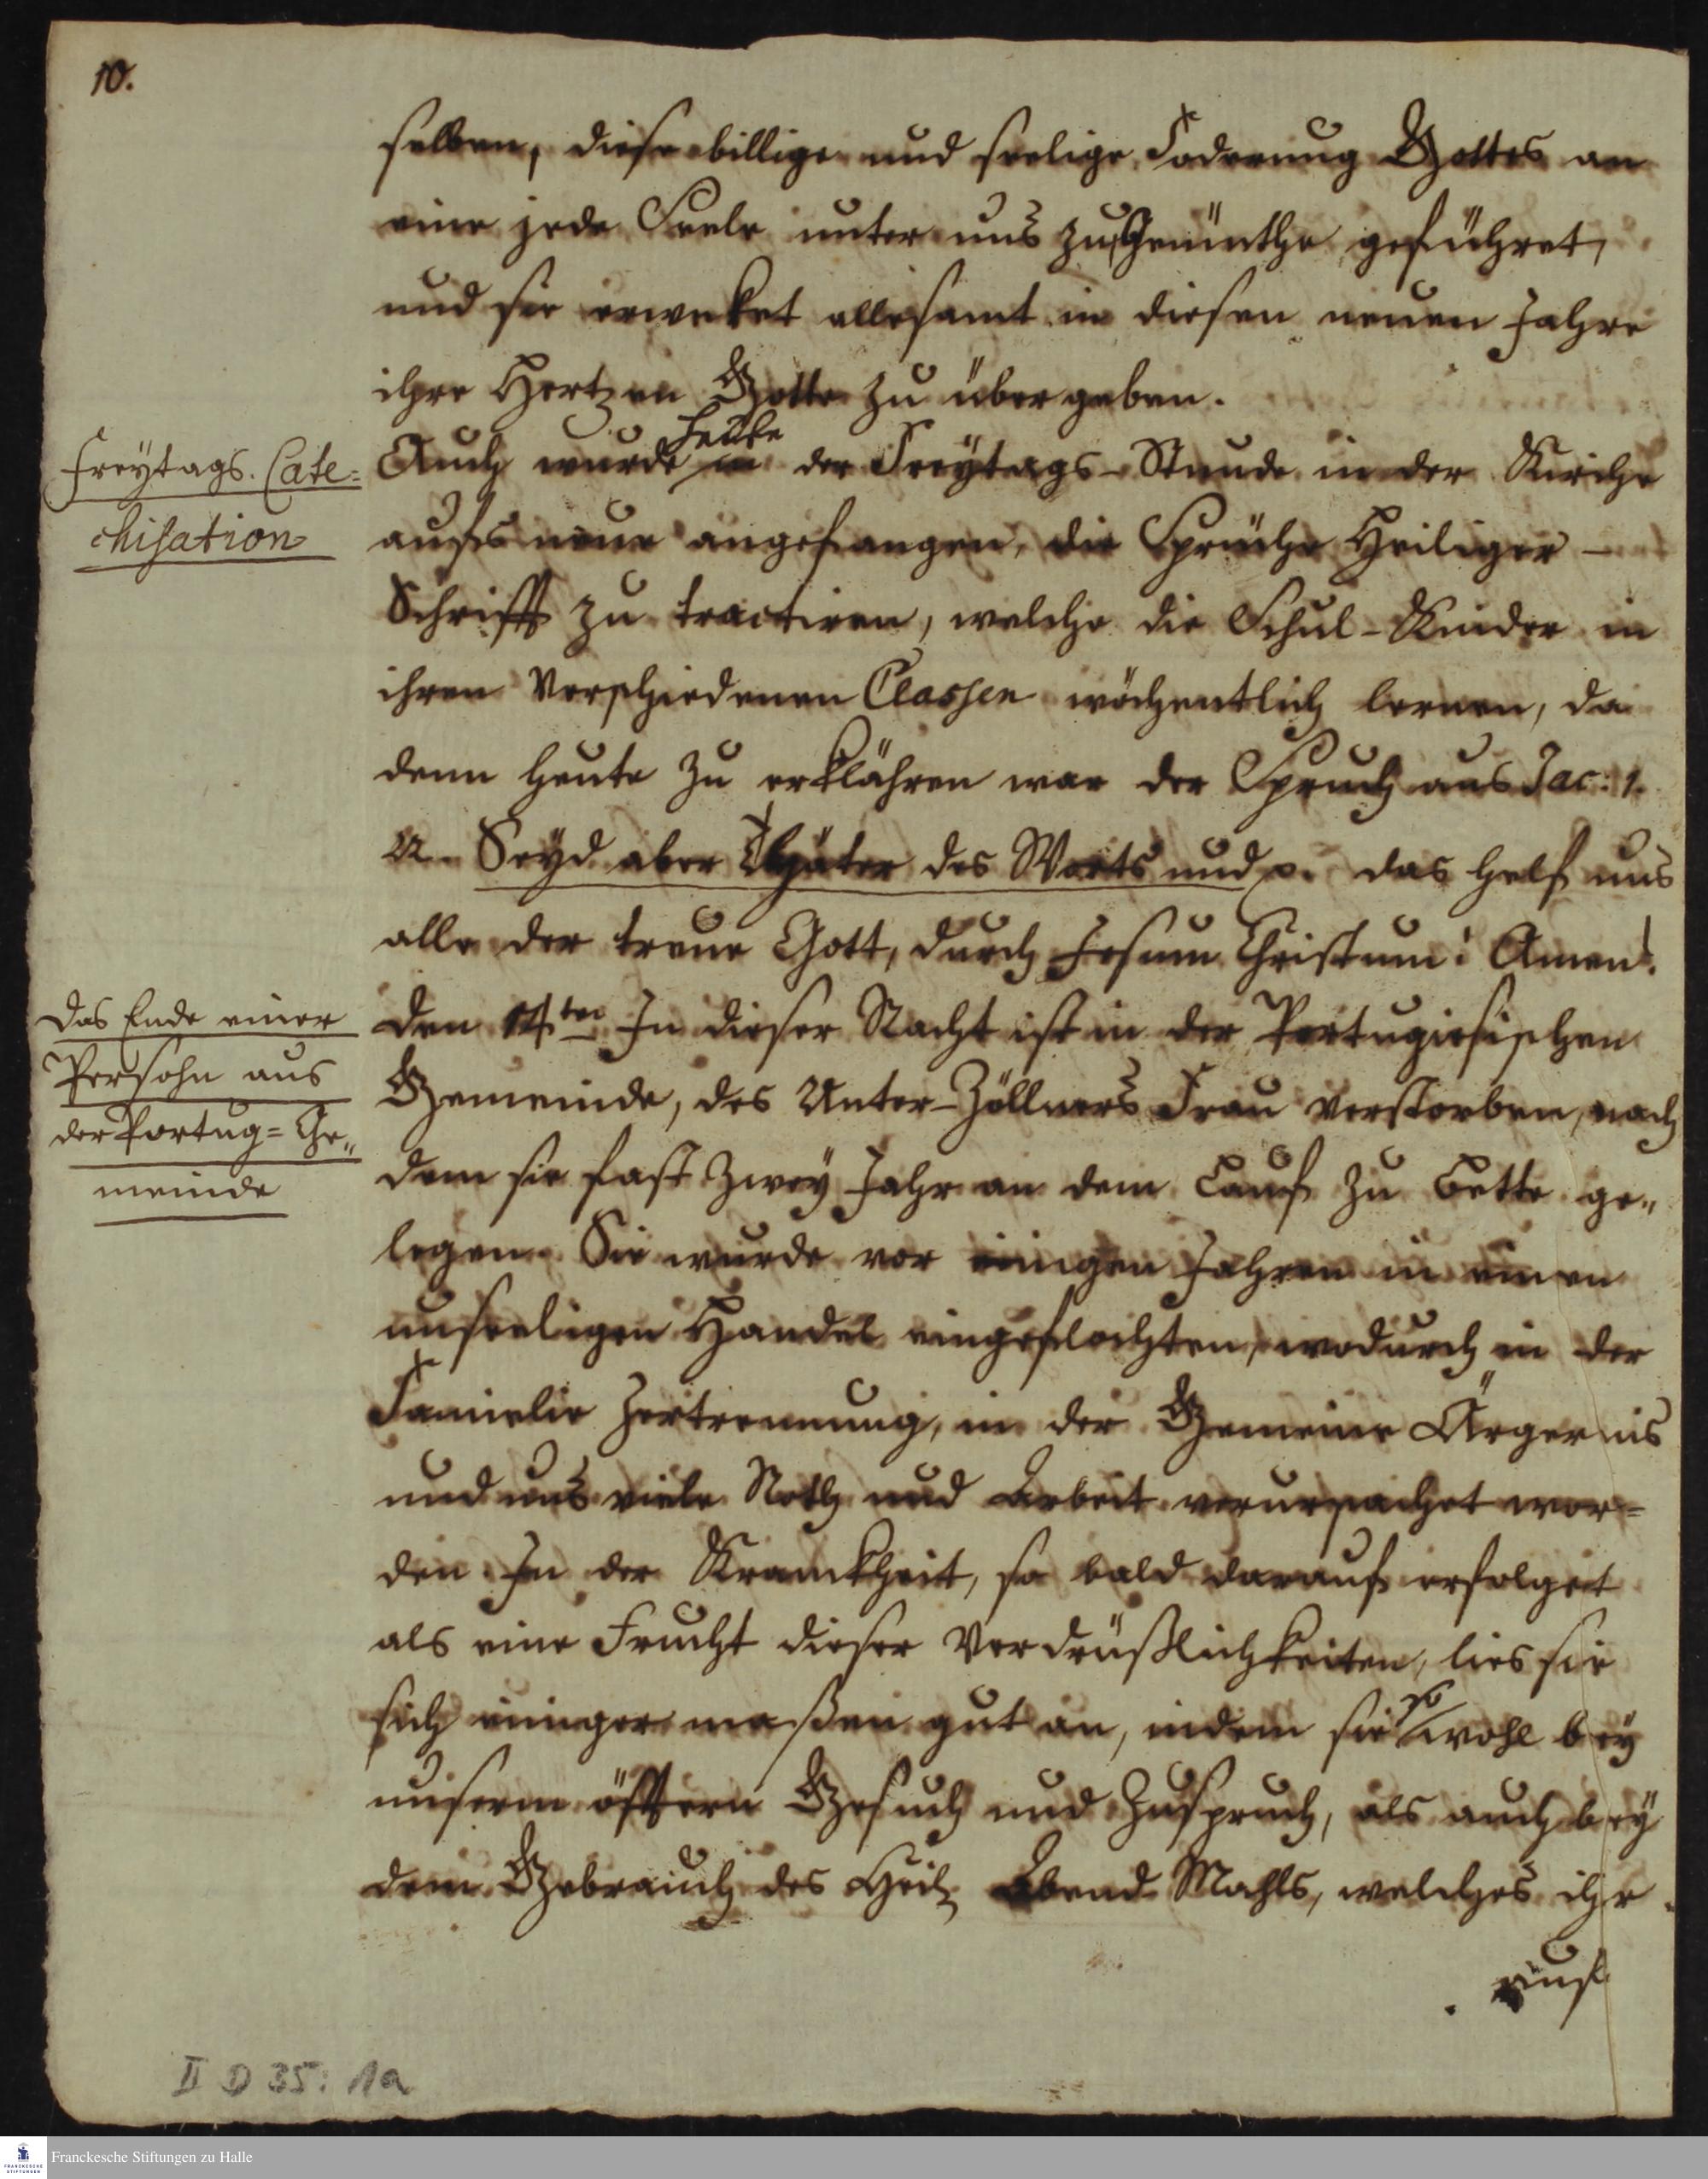 10.
selben, diese billige und seelige Foderung Gottes an
eine jede Seele unter uns zu Gemüthe geführet,
und sie erweket allesamt in diesen neuen Jahre
ihre Hertzen Gotte zu übergeben.
Freytags. Cate=
chisation
Auch wurde heute in der Freytags-Stunde in der Kirche
aufs neue angefangen, die Sprüche Heiliger –
Schrifft zu tractiren, welche die Schul-Kinder in
ihren verschiedenen Classen wöchentlich lernen, da
denn heute zu erklähren war der Spruch aus Jac: 1.
22. Seyd aber Thäter des Worts und p. das helf uns
alle der treue Gott, durch Jesum Christum! Amen!
Das Ende einer
Persohn aus
der Portug= Ge„
meinde
Den 14ten In dieser Nacht ist in der Portugiesischen
Gemeinde, des Unter-Zöllners Frau verstorben, nach
dem sie fast zwey Jahr an dem Lauf zu Bette ge„
legen. Sie wurde vor einigen Jahren in einen
unseeligen Handel eingeflochten, wodurch in der
Famielie Zertrennung, in der Gemeine Ärgernis
und uns viele Noth und Arbeit verursachet wor=
den. In der Kranckheit, so bald darauf erfolget
als eine Frucht dieser Verdrüßlichkeiten, lies sie
sich einiger maßen gut an, indem sie so wohl bey
unserm öfftern Besuch und Zuspruch, als auch bey
dem Gebrauch des Heil. Abend-Mahls, welches ihr
auf
II D 35: 1a
Franckesche Stiftungen zu Halle